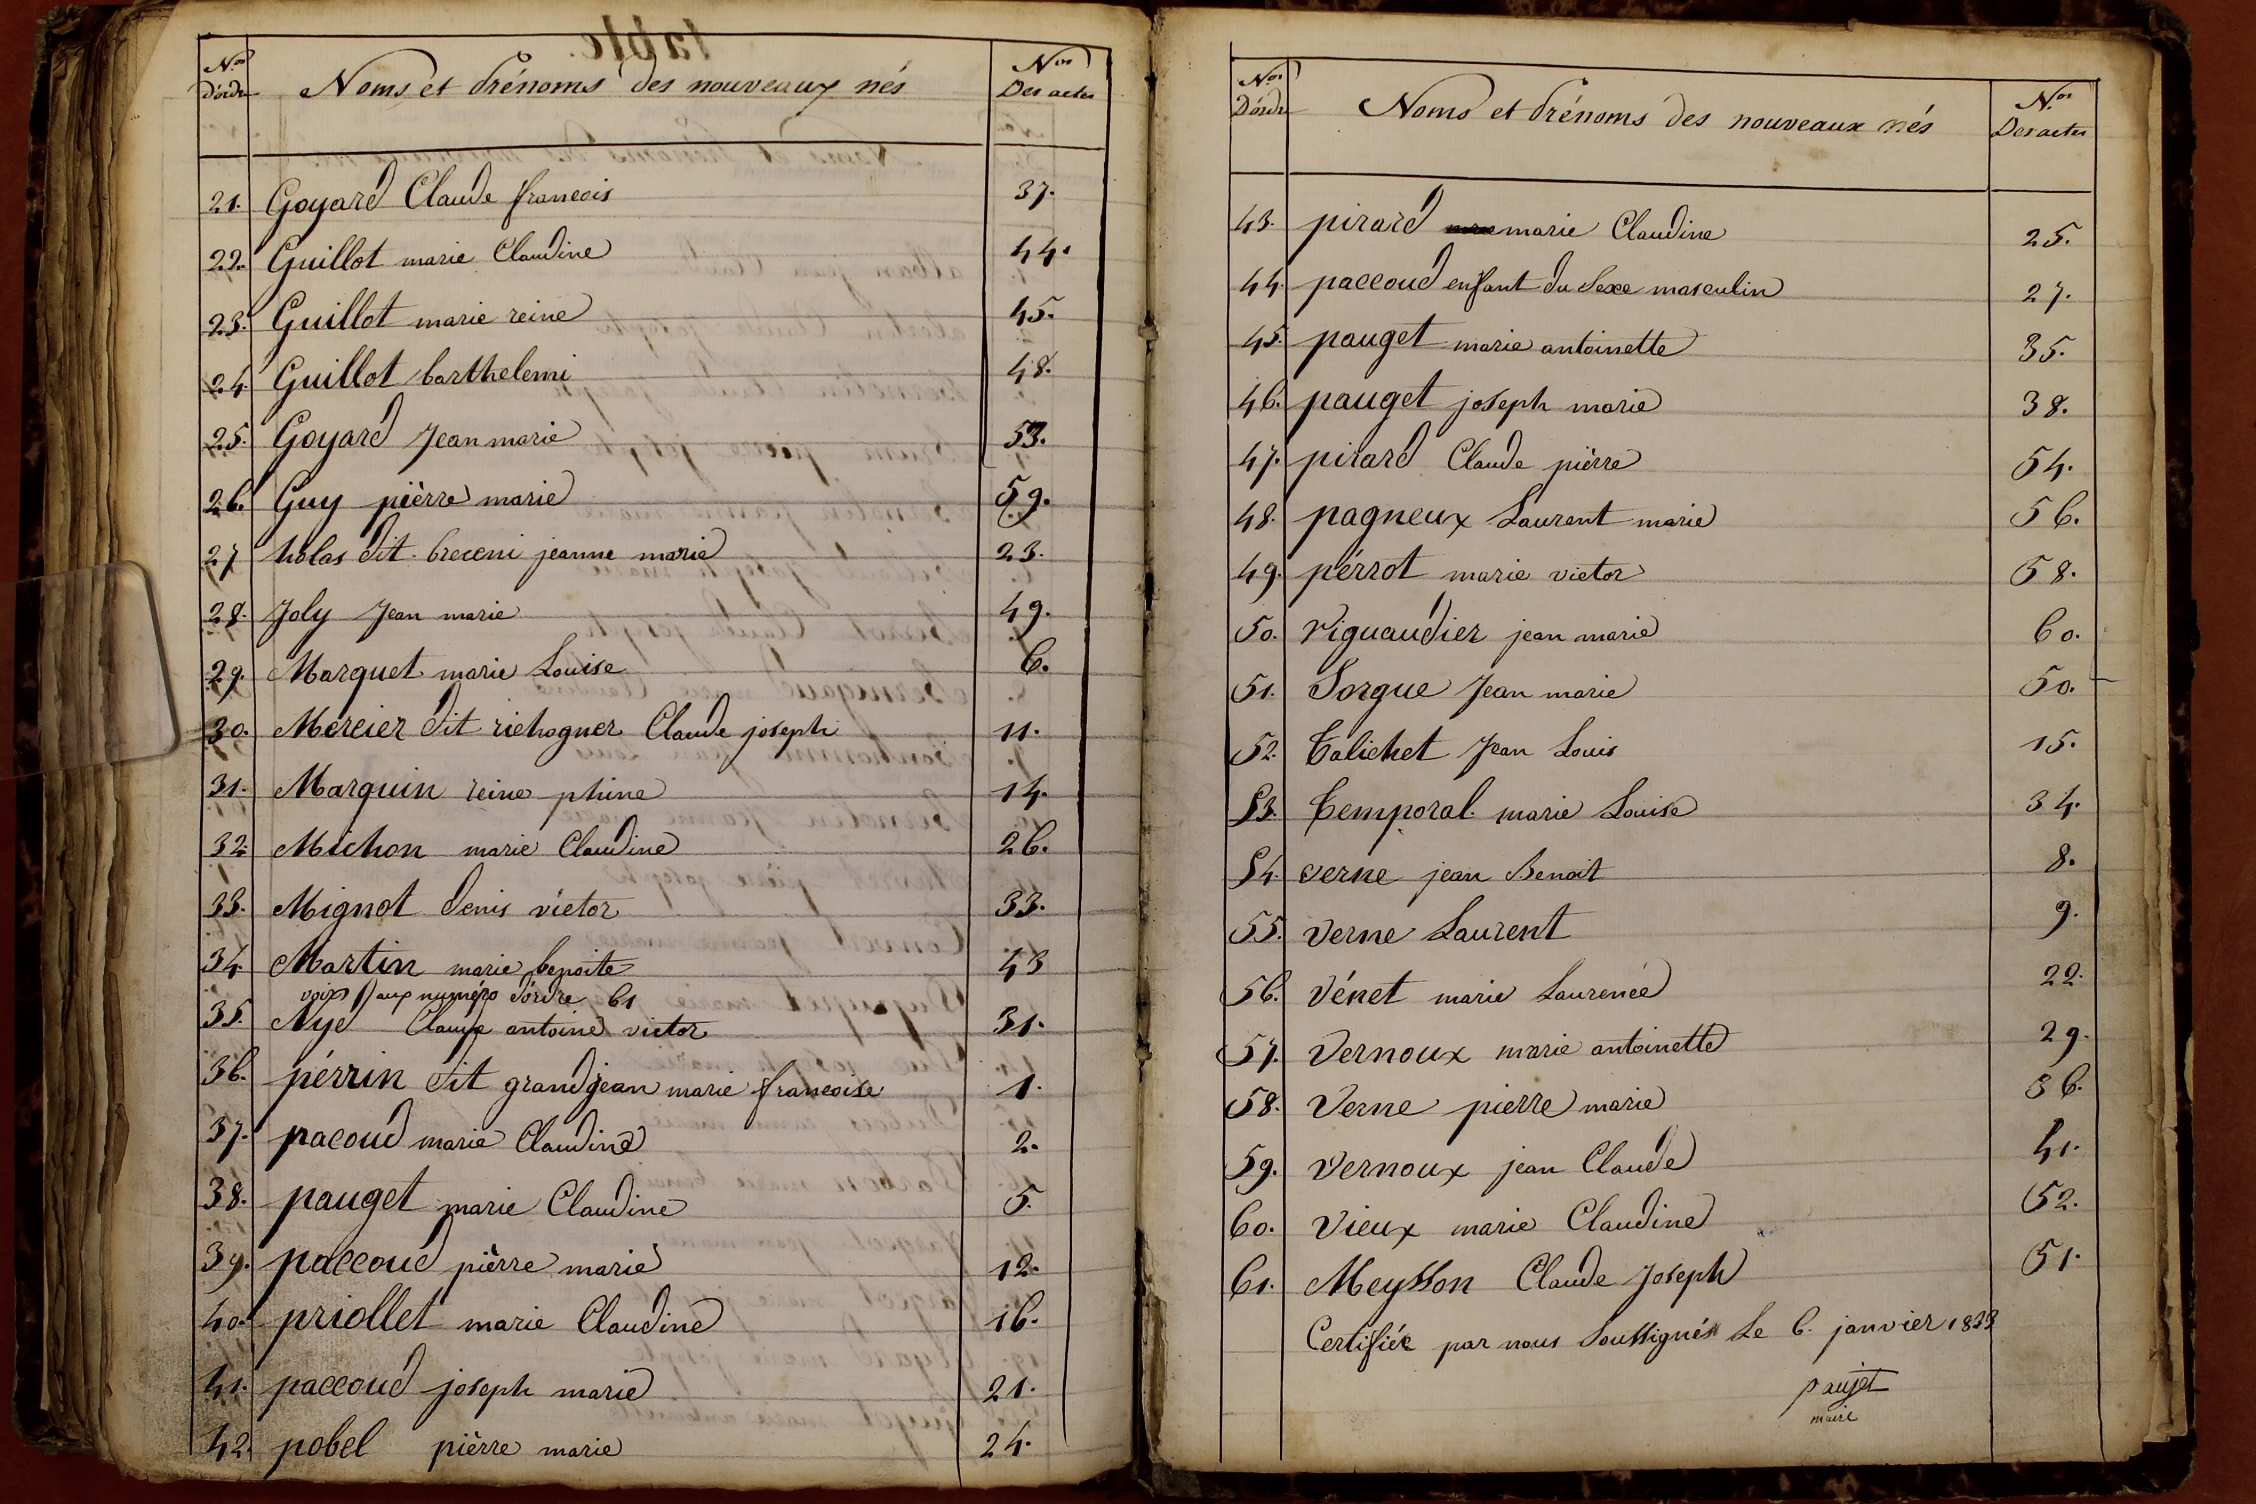 Nos d'ordre Noms et Prénoms des nouveaux nés Nos Des actes
21. Goyard Claude francois 37.
22. Guillot marie Claudine 44.
23. Guillot marie reine 45.
24. Guillot barthelemi 48.
25. Goyard Jean marie 53.
26. Guy pièrre marie 59.
27 holas dit breceni jeanne marie 23.
28. Joly Jean marie 49.
29. Marquet marie Louise 6.
30. Mercier dit richogner Claude joseph 11.
31. Marquin reine phine 14.
32. Michon marie Claudine 26.
33. Mignot denis victor 33.
34. Martin marie benoite 43
voir aux numéro d'ordre 61
35. Nyd Claude antoine victor 31.
36. pérrin dit grandjean marie francoise 1.
37. pacoud marie Claudine 2.
38. pauget marie Claudine 5.
39. paccoud pièrre marie 12.
40. priollet marie Claudine 16.
41. paccoud joseph marie 21.
42. pobel pièrre marie 24.
Nos D'ordre Noms et Prénoms des nouveaux nés Nos Des actes
43. pirard marie Claudine 25.
44. paccoud enfant du Sexe masculin 27.
45. pauget marie antoinette 35.
46. pauget joseph marie 38.
47. pirard Claude pièrre 54.
48. pagneux Laurent marie 56.
49. pérrot marie victor 58.
50. riguaudier jean marie 60.
51. Sorgue Jean marie 50.
52. Talichet Jean Louis 15.
53. Temporal marie Louise 34.
54. verne jean Benoit 8.
55. verne Laurent 9.
56. vénet marie Laurence 22.
57. vernoux marie antoinette 29.
58. verne pierre marie 36.
59. vernoux jean Claude 41.
60. vieux marie Claudine 52.
61. Meysson Claude Joseph 51.
Certifiée par nous Soussignés Le 6. janvier 1833
paujet
maire